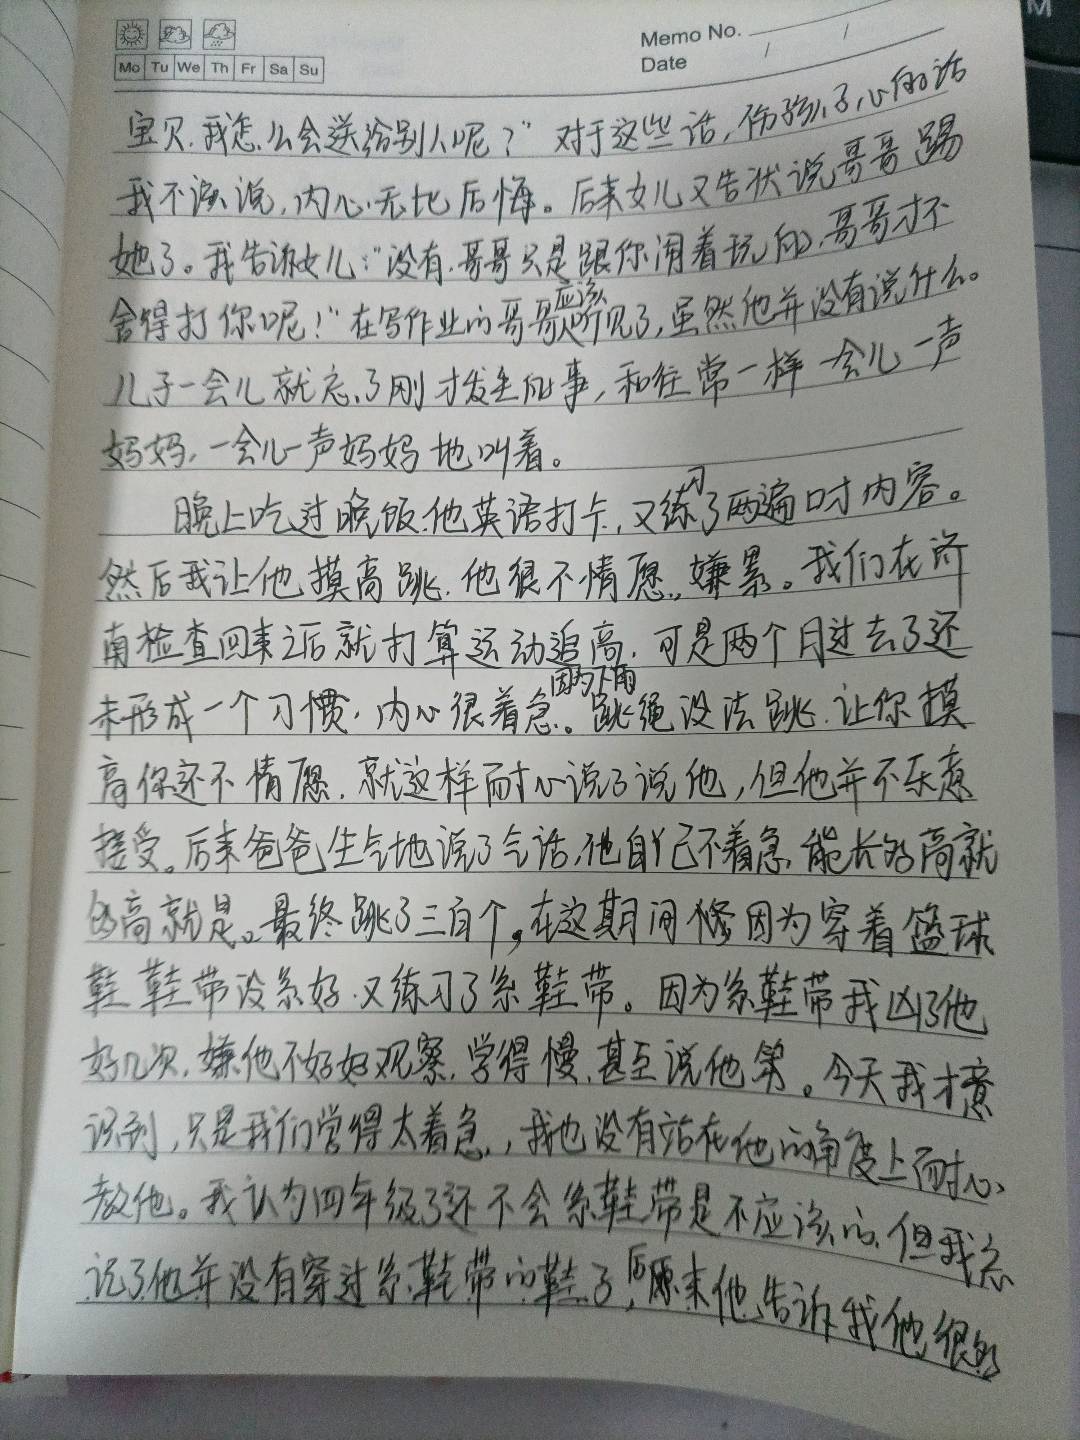 Memo No.
Mo Tu We Th Fr Sa Su
Date
宝贝,我怎么会送给别人呢?”对于这些话,伤孩子心的话
我不该说,内心无比后悔。后来女儿又告状说哥哥踢
她了。我告诉女儿:“没有,哥哥只是跟你闹着玩的,哥哥才不
舍得打你呢!”在写作业的哥哥应该听见了,虽然他并没有说什么。
儿子一会儿就忘了刚才发生的事,和往常一样一会儿一声
妈妈,一会儿一声妈妈地叫着。
晚上吃过晚饭,他英语打卡,又练习了两遍口才内容。
然后我让他摸高跳,他很不情愿,嫌累。我们在济
南检查回来之后就打算运动追高,可是两个月过去了还
未形成一个习惯,内心很着急。因为下雨跳绳没法跳,让你摸
高你还不情愿,就这样耐心说了说他,但他并不乐意
接受。后来爸爸生气地说了气话,他自己不着急,能长多高就
多高就是。最终跳了三百个,在这期间修因为穿着篮球
鞋鞋带没系好,又练习了系鞋带。因为系鞋带我凶了他
好几次,嫌他不好好观察,学得慢,甚至说他笨。今天我才意
识到,只是我们觉得太着急,我也没有站在他的角度上耐心
教他。我认为四年级了还不会系鞋带是不应该的,但我忘
记了他并没有穿过系鞋带的鞋子,后来他告诉我他很多